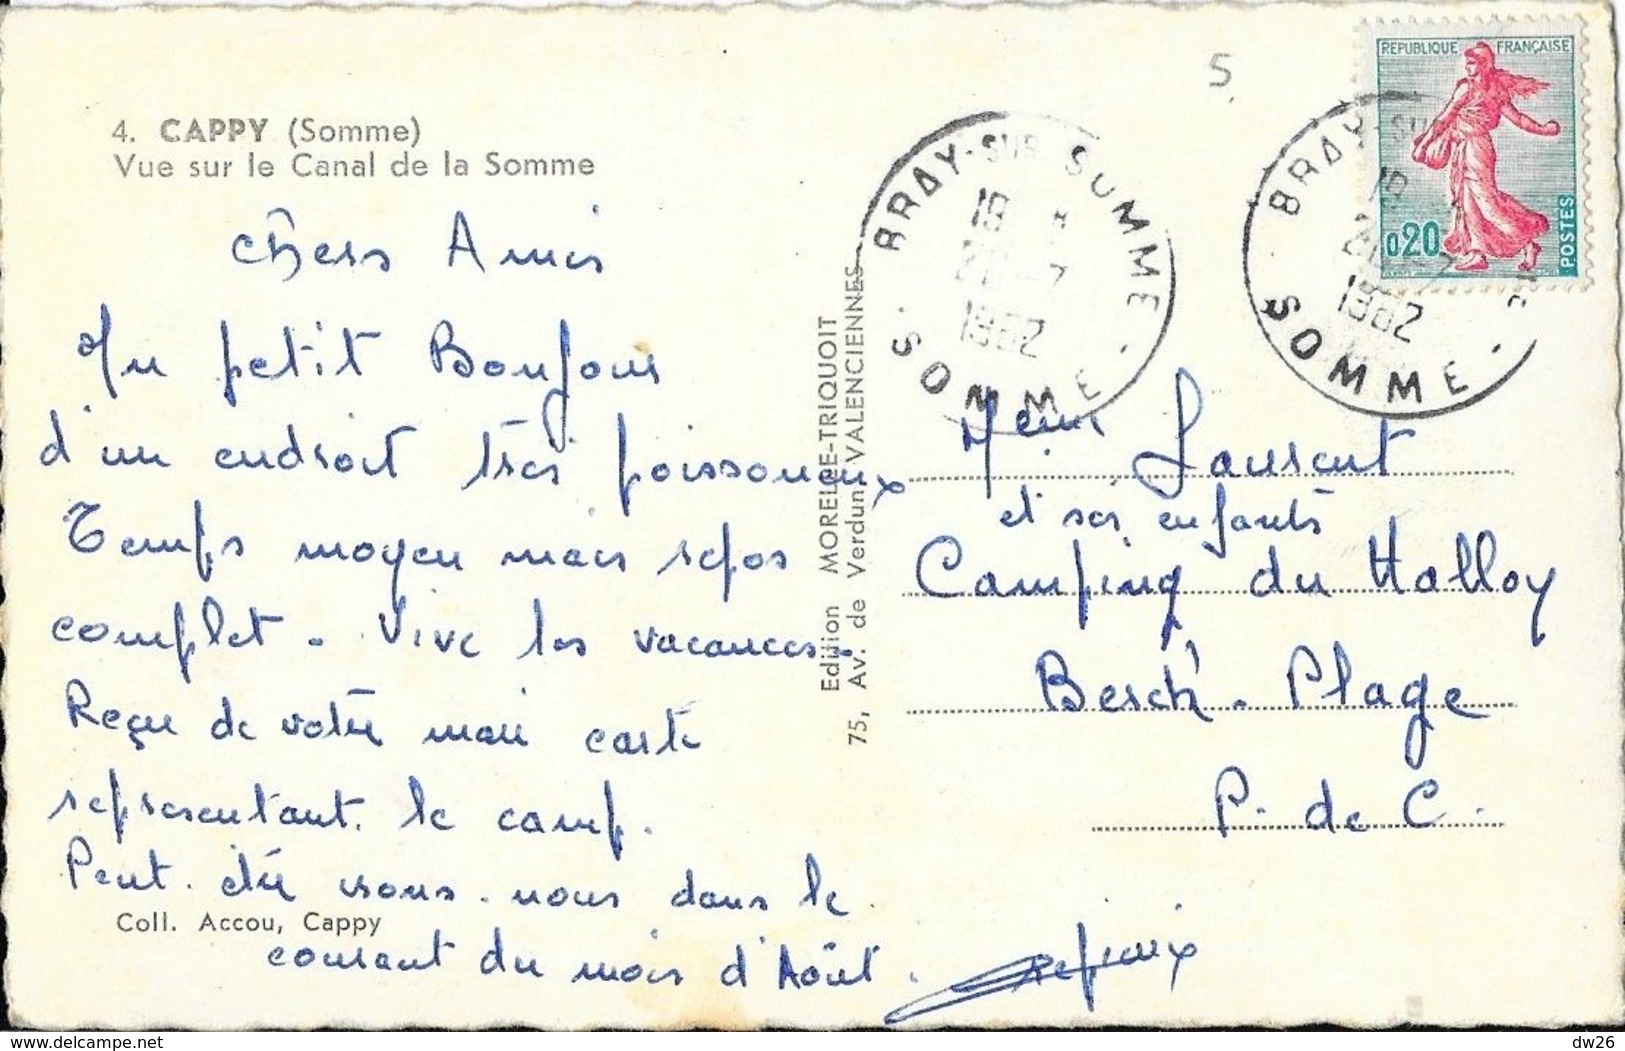 4. CAPPY (Somme)
Vue sur le Canal de la Somme
Chers Amis
Un petit Bonjour
d'un endroit très poissoneux
Temps moyen mais repos
complet. Vive les vacances.
Reçu de votre mari carte
représentant le camp.
Peut-être irons-nous dans le
courant du mois d'Août.
Coll. Accou, Cappy
Edition MORELLE-TRIQUOIT
75, Av. de Verdun, VALENCIENNES
5
BRAY-SUR-SOMME
19 H
20-7
1962
SOMME
BRAY-SUR
19
20-7
1962
SOMME
REPUBLIQUE FRANÇAISE
0,20
POSTES
Laurent
et ses enfants
Camping du Halloy
Berck-Plage
P. de C.
dw26